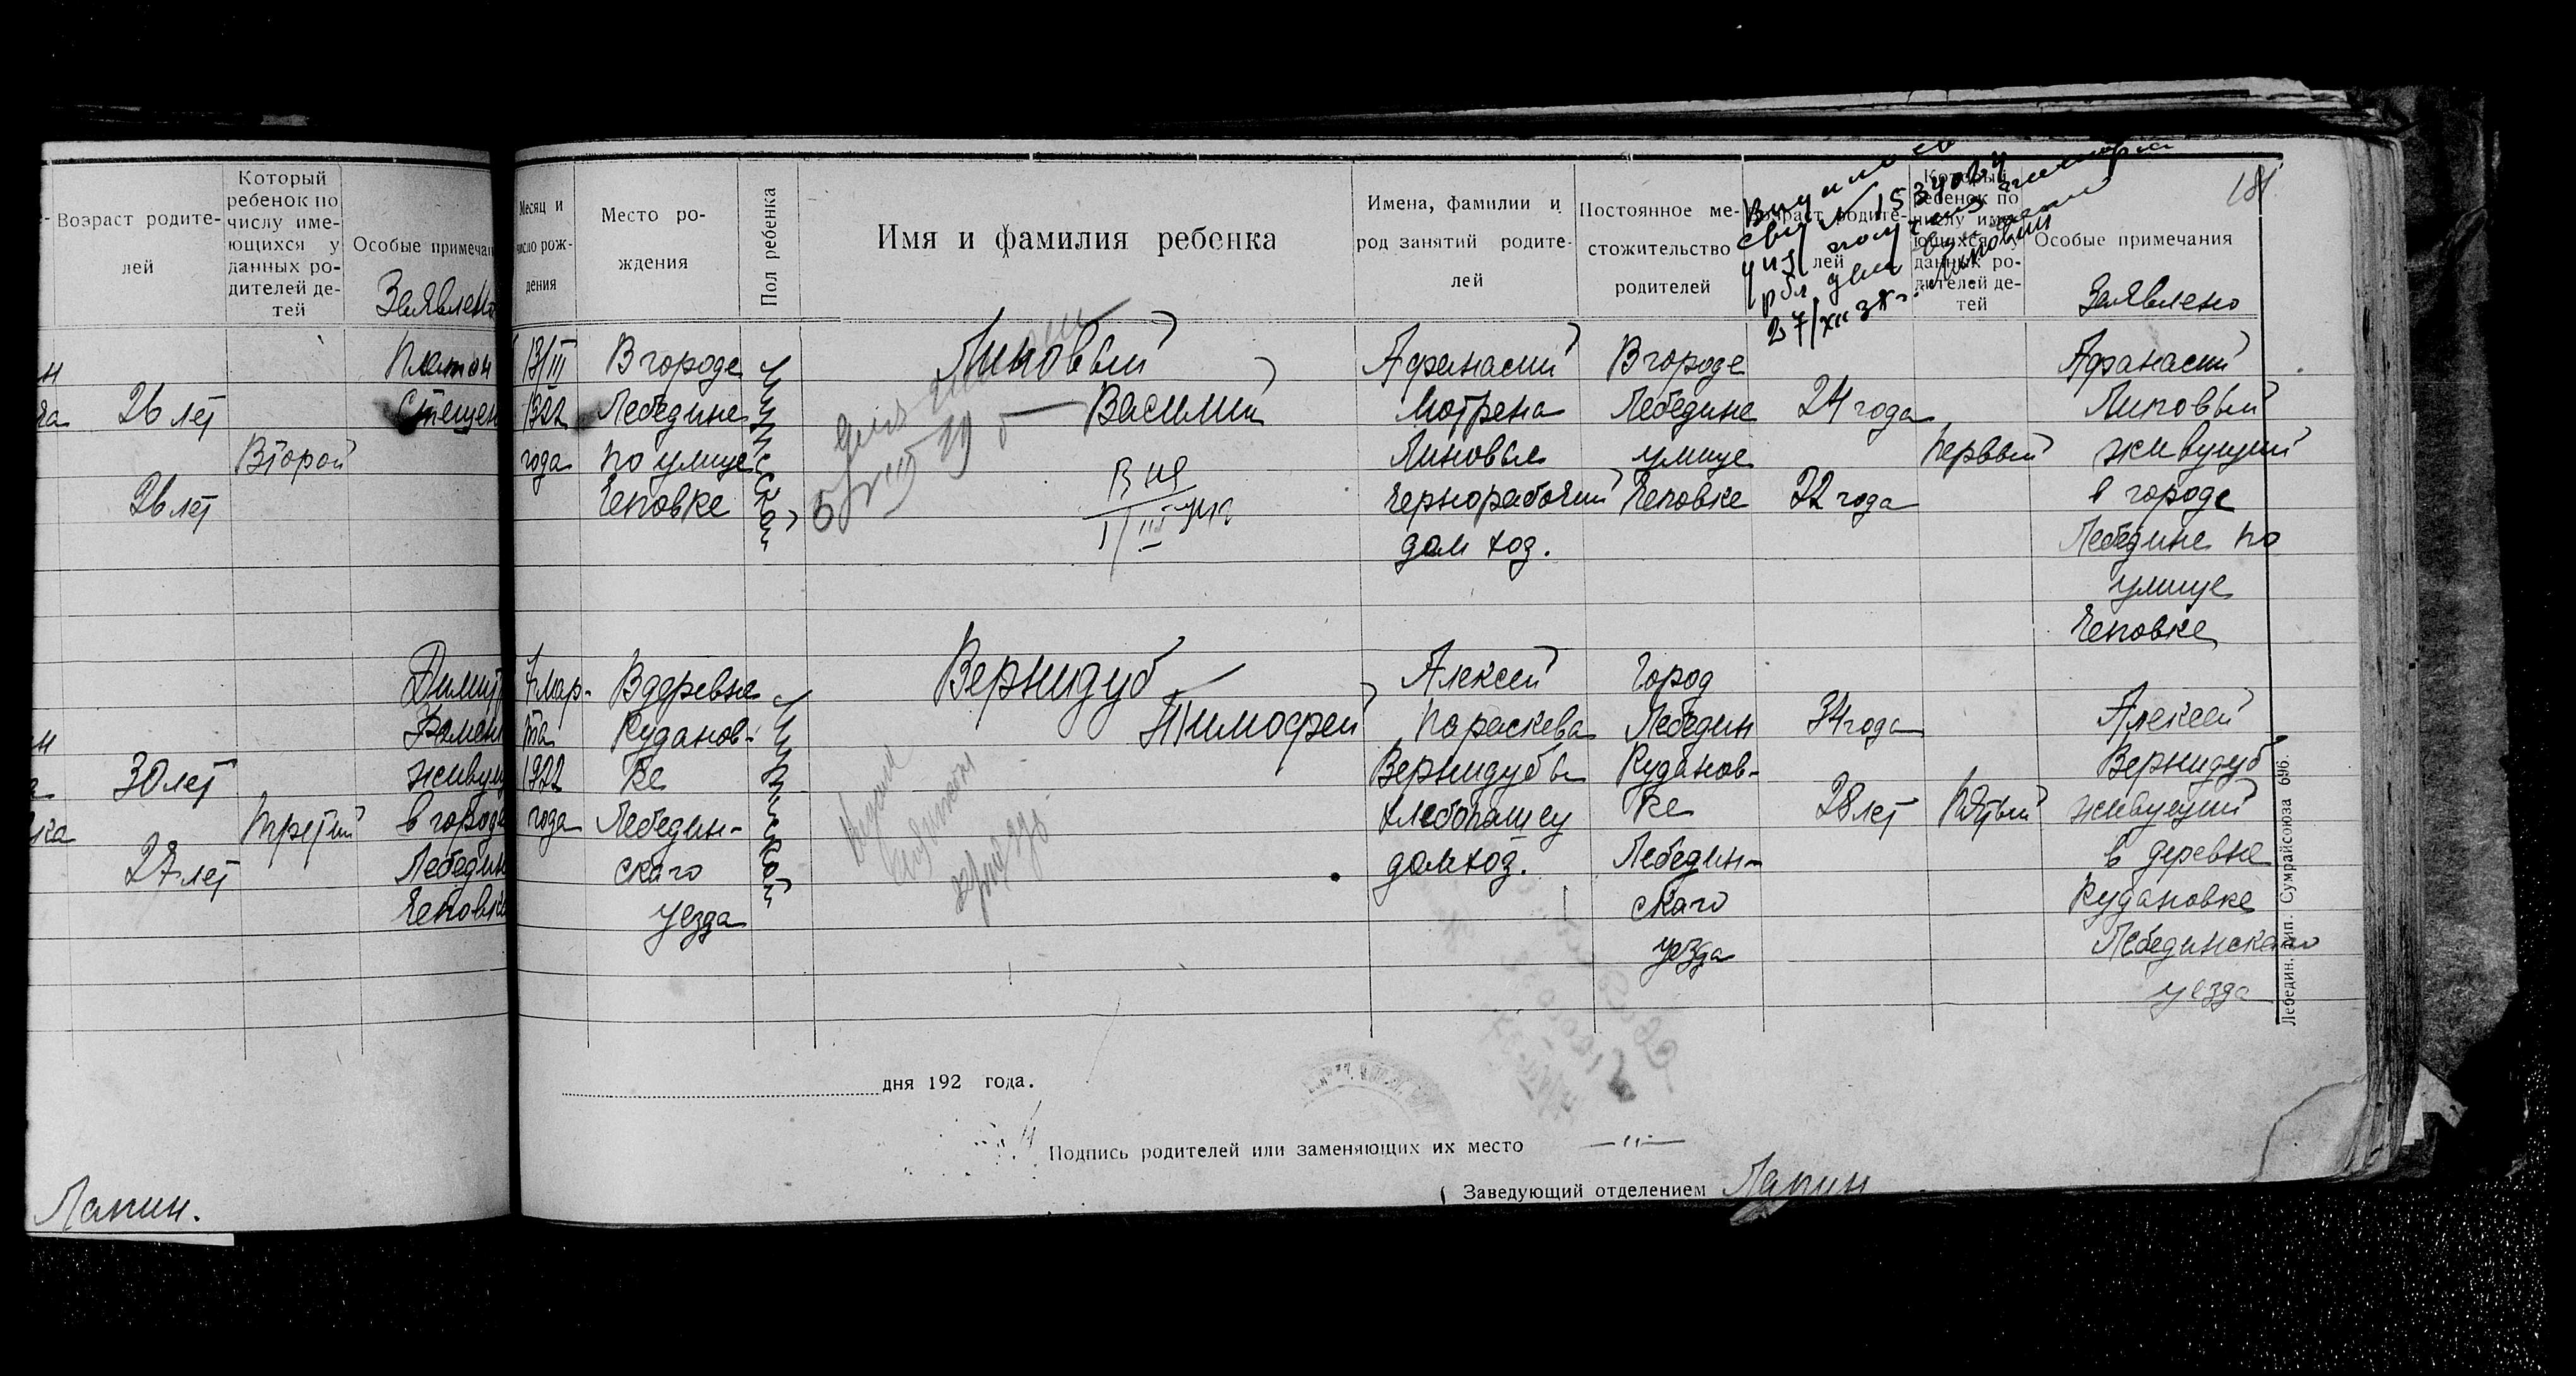 Возраст родите-
лей
Который
ребенок по
числу име-
ющихся у
данных ро-
дителей де-
тей
Особые примечан
Заявлено
Платон
26 лет
Степен
Второй
26 лет
Димит
30 лет
живущ
Третий
в городе
27 лет
Лебедин
Чеповке
Лапин.
181
Месяц и
число рож-
дения
Место ро-
ждения
Пол ребенка
Имя и фамилия ребенка
Имена, фамилии и
род занятий родите-
лей
Постоянное ме-
стожительство
родителей
Возраст родите-
лей
Который
ребенок по
числу име-
ющихся у
данных ро-
дителей де-
тей
Особые примечания
Заявлено
27/XII 38 г.
13/III
1922
года
В городе
Лебедине
по улице
Чеповке
Мужеской
Липовый
Василий
Афанасий
Мотрена
Липовые
чернорабочий
дом хоз.
В городе
Лебедине
улице
Чеповке
24 года
22 года
Первый
Афанасий
Липовый
живущий
в городе
Лебедине по
улице
Чеповке
7 мар-
та
1922
года
В деревне
Кудановке
Лебедин-
скаго
уезда
Мужеской
Вернидуб
Тимофей
Алексей
Параскева
Вернидубы
хлебопашец
домхоз.
Город
Лебедин
Куданов-
ке
Лебедин-
скаго
уезда
34 года
28 лет
Пятый
Алексей
Вернидуб
живущий
в деревне
Кудановке
Лебединскаго
уезда
Лебедин. тип. Сумрайсоюза 696.
дня 192 года.
Подпись родителей или заменяющих их место
Заведующий отделением Лапин